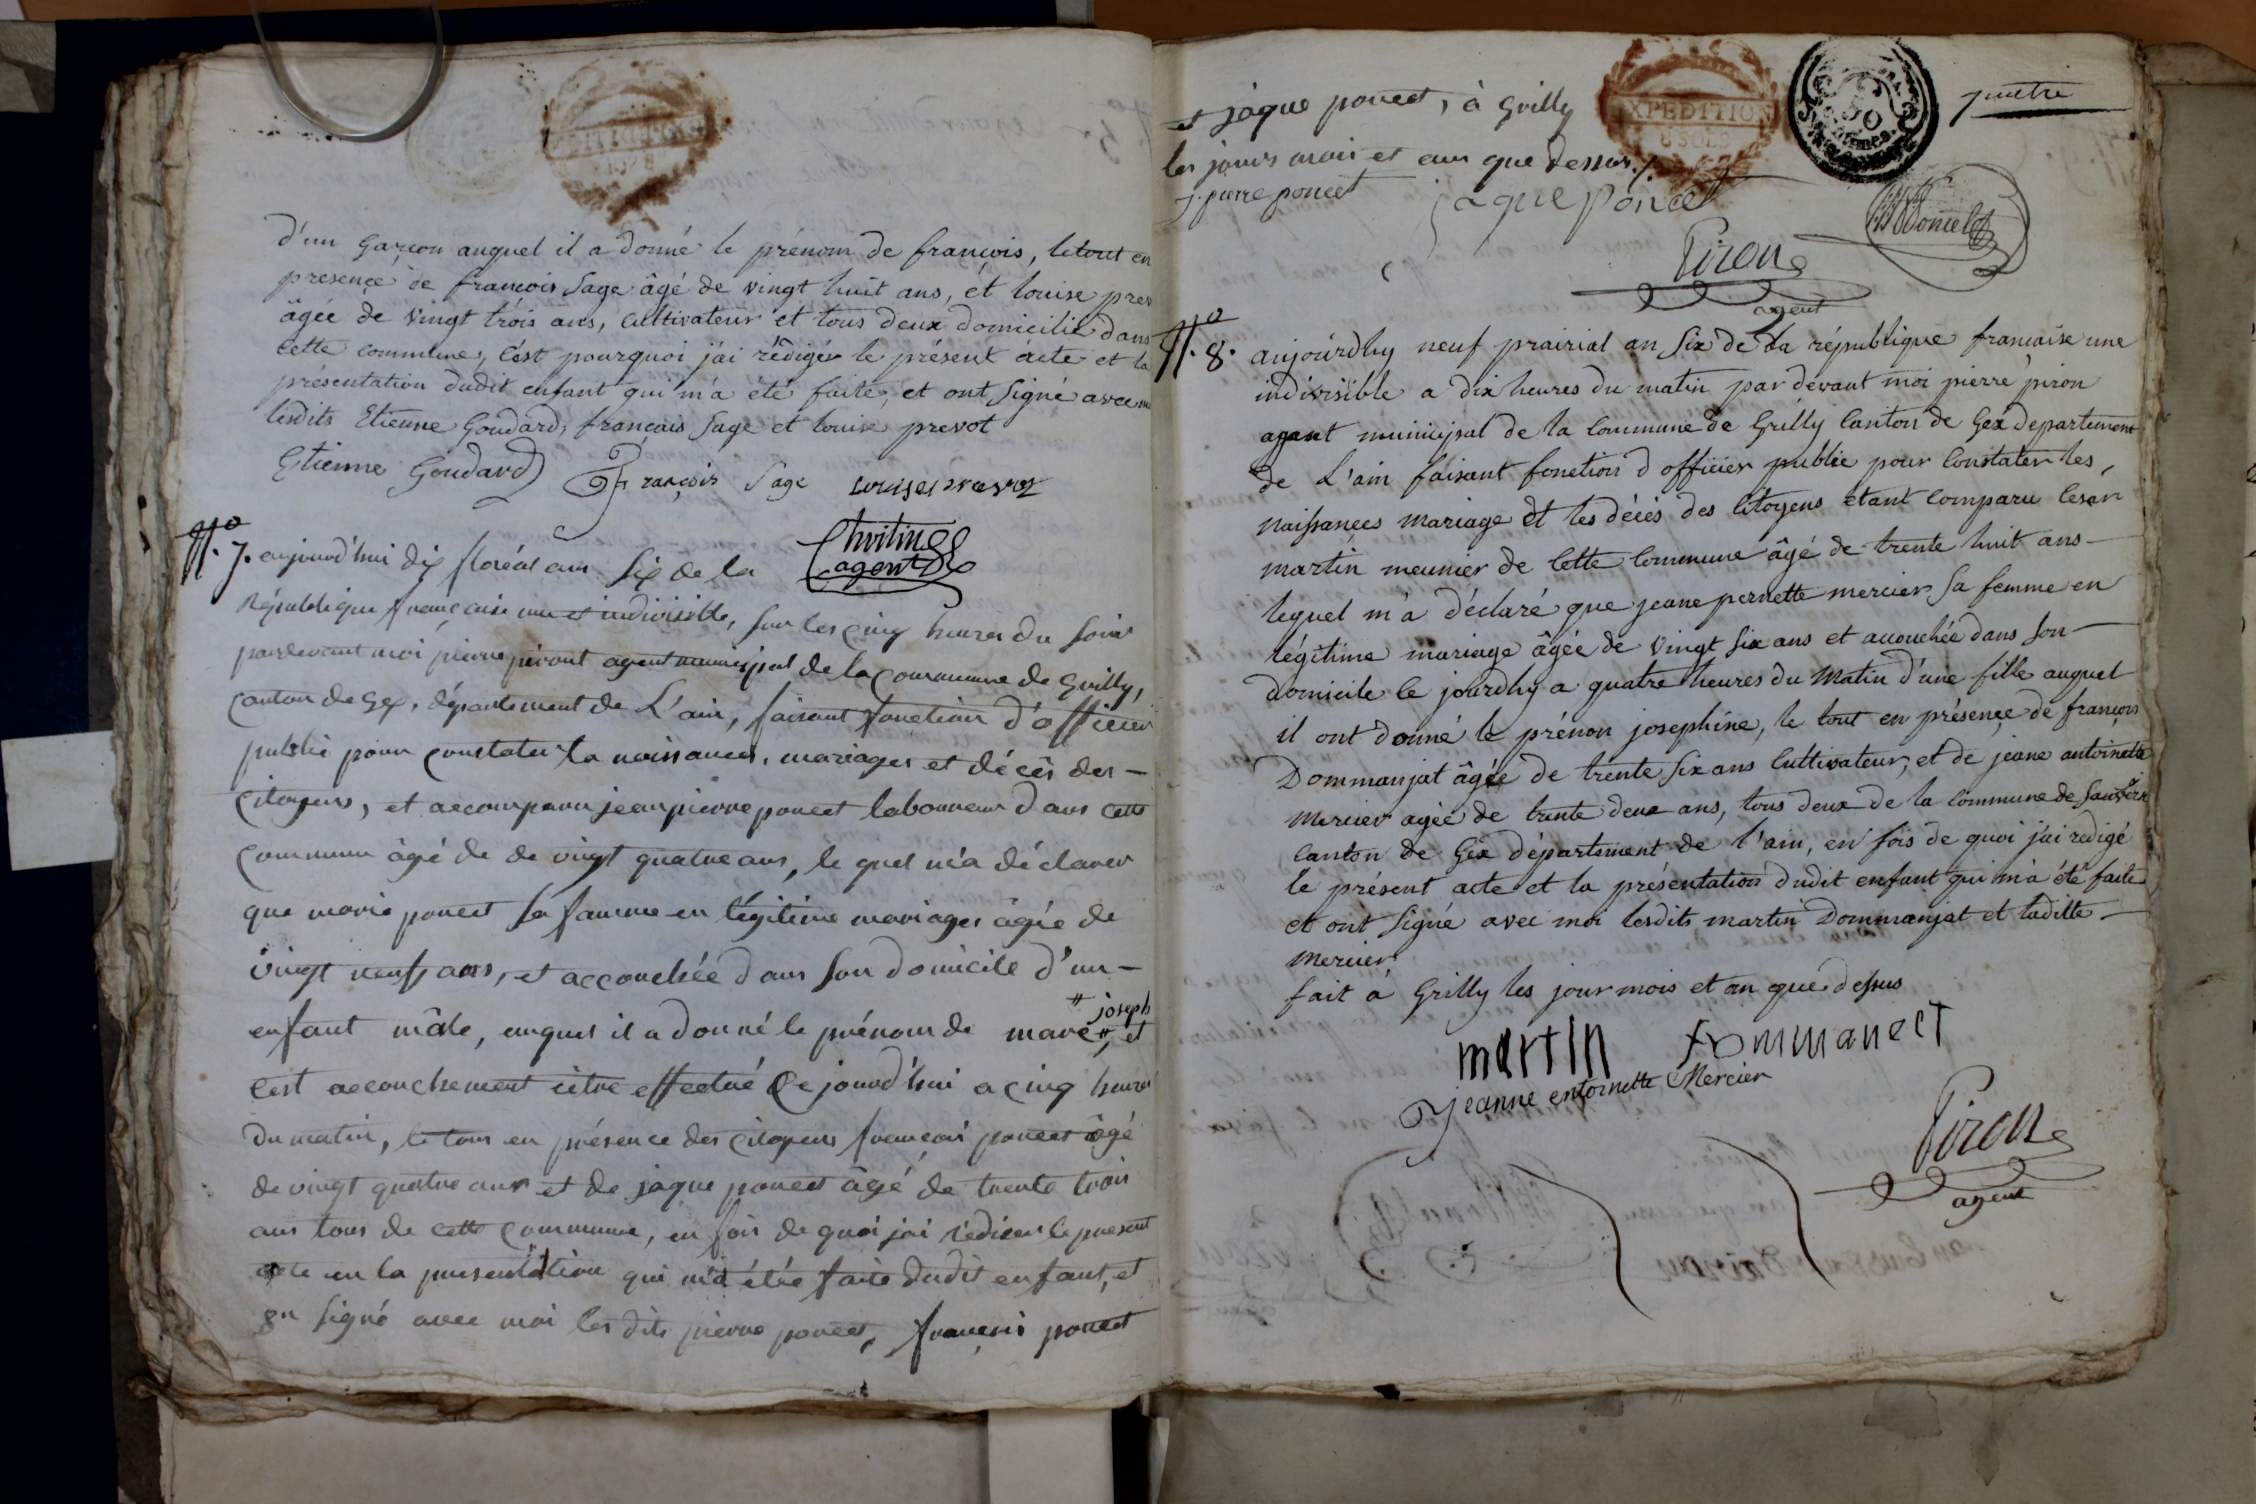 d'un garçon auquel il a donné le prénom de françois, le tout en
presençe de françois Sage âgé de vingt huit ans, et louise prev
âgée de vingt trois ans, cultivateur et tous deux domicilié dans
cette commune, C'est pourquoi j'ai rédigé le présent acte et la
présentation dudit enfant qui m'a été faite, et ont Signé avec m
lesdits Etienne Goudard, français Sage et louise prevot
Etienne Goudard François Sage
Chvitine
agent
N.º 7. aujourd'hui dix floréal an Six de la
République françaisse une et indivisible, Sur les cinq heures du Soir
pardevant moi pierre piront agent municipal de la commune de Grilly,
canton de Gex, département de L'ain, faisant fonction d'officier
public pour constater la naissances, mariages et décès des -
citoyens, et accomparu jean pierre poncet laboureur dans cette
commune âgé de de vingt quatre ans, le quel m'a déclarer
que marie poncet Sa famme en légitime mariages âgée de
vingt neuf ans, et accouchée dans Son domicile d'un -
# joseph
enfant mâle, auquel il a donné le prénom de marc #, et
cest accouchement être effectué Ce jourd'hui a cinq heures
du matin, le tous en présence des citoyens françois poncet âgé
de vingt quatre ans et de jaque poncet âgé de trente trois
ans tous de cette commune, en fois de quoi jai rediger le present
acte en la presentation qui m'a étée faite dudit enfant, et
on Signé avec moi les dits pierre poncet, françois poncet
et jàque poncet, à Grilly
les jours mois et ans que dessus ./.
J. pierre poncet jaque poncet
Poncet
Piron
agent
EXPEDITION
8 SOLS
N.º 8. aujourdhy neuf prairial an Six de la république francaise une
indivisible a dix heures du matin par devant moi pierre piron
agant municipal de la Commune de Grilly Canton de Gex departement
de L'ain faisant fonction d officier publie pour Constater les
Naissances Mariage et les décès des Citoyens etant Comparu Cesar
martin meunier de Cette Commune âgé de trente huit ans -
lequel m'a déclaré que jeane pernette mercier Sa femme en
légitime mariage âgée de vingt Six ans et accouchée dans Son -
domicile le jourdhy a quatre heures du Matin d'une fille auquel
il ont donné le prénon josephine, le tout en présençe de françois
Dommanjat âgée de trente Six ans Cultivateur, et de jeane antoinette
Mercier agée de trente deux ans, tous deux de la Commune de Sauverni
Canton de Gex département de l'ain, en fois de quoi j'ai redigé
le présent acte et la présentation dudit enfant qui m'a été faite
et ont Signé avec moi lesdits martin Dommanjat et laditte -
Mercier
fait a Grilly les jour mois et an que dessus
martin
jeanne entoinette Mercier
Piron
agent